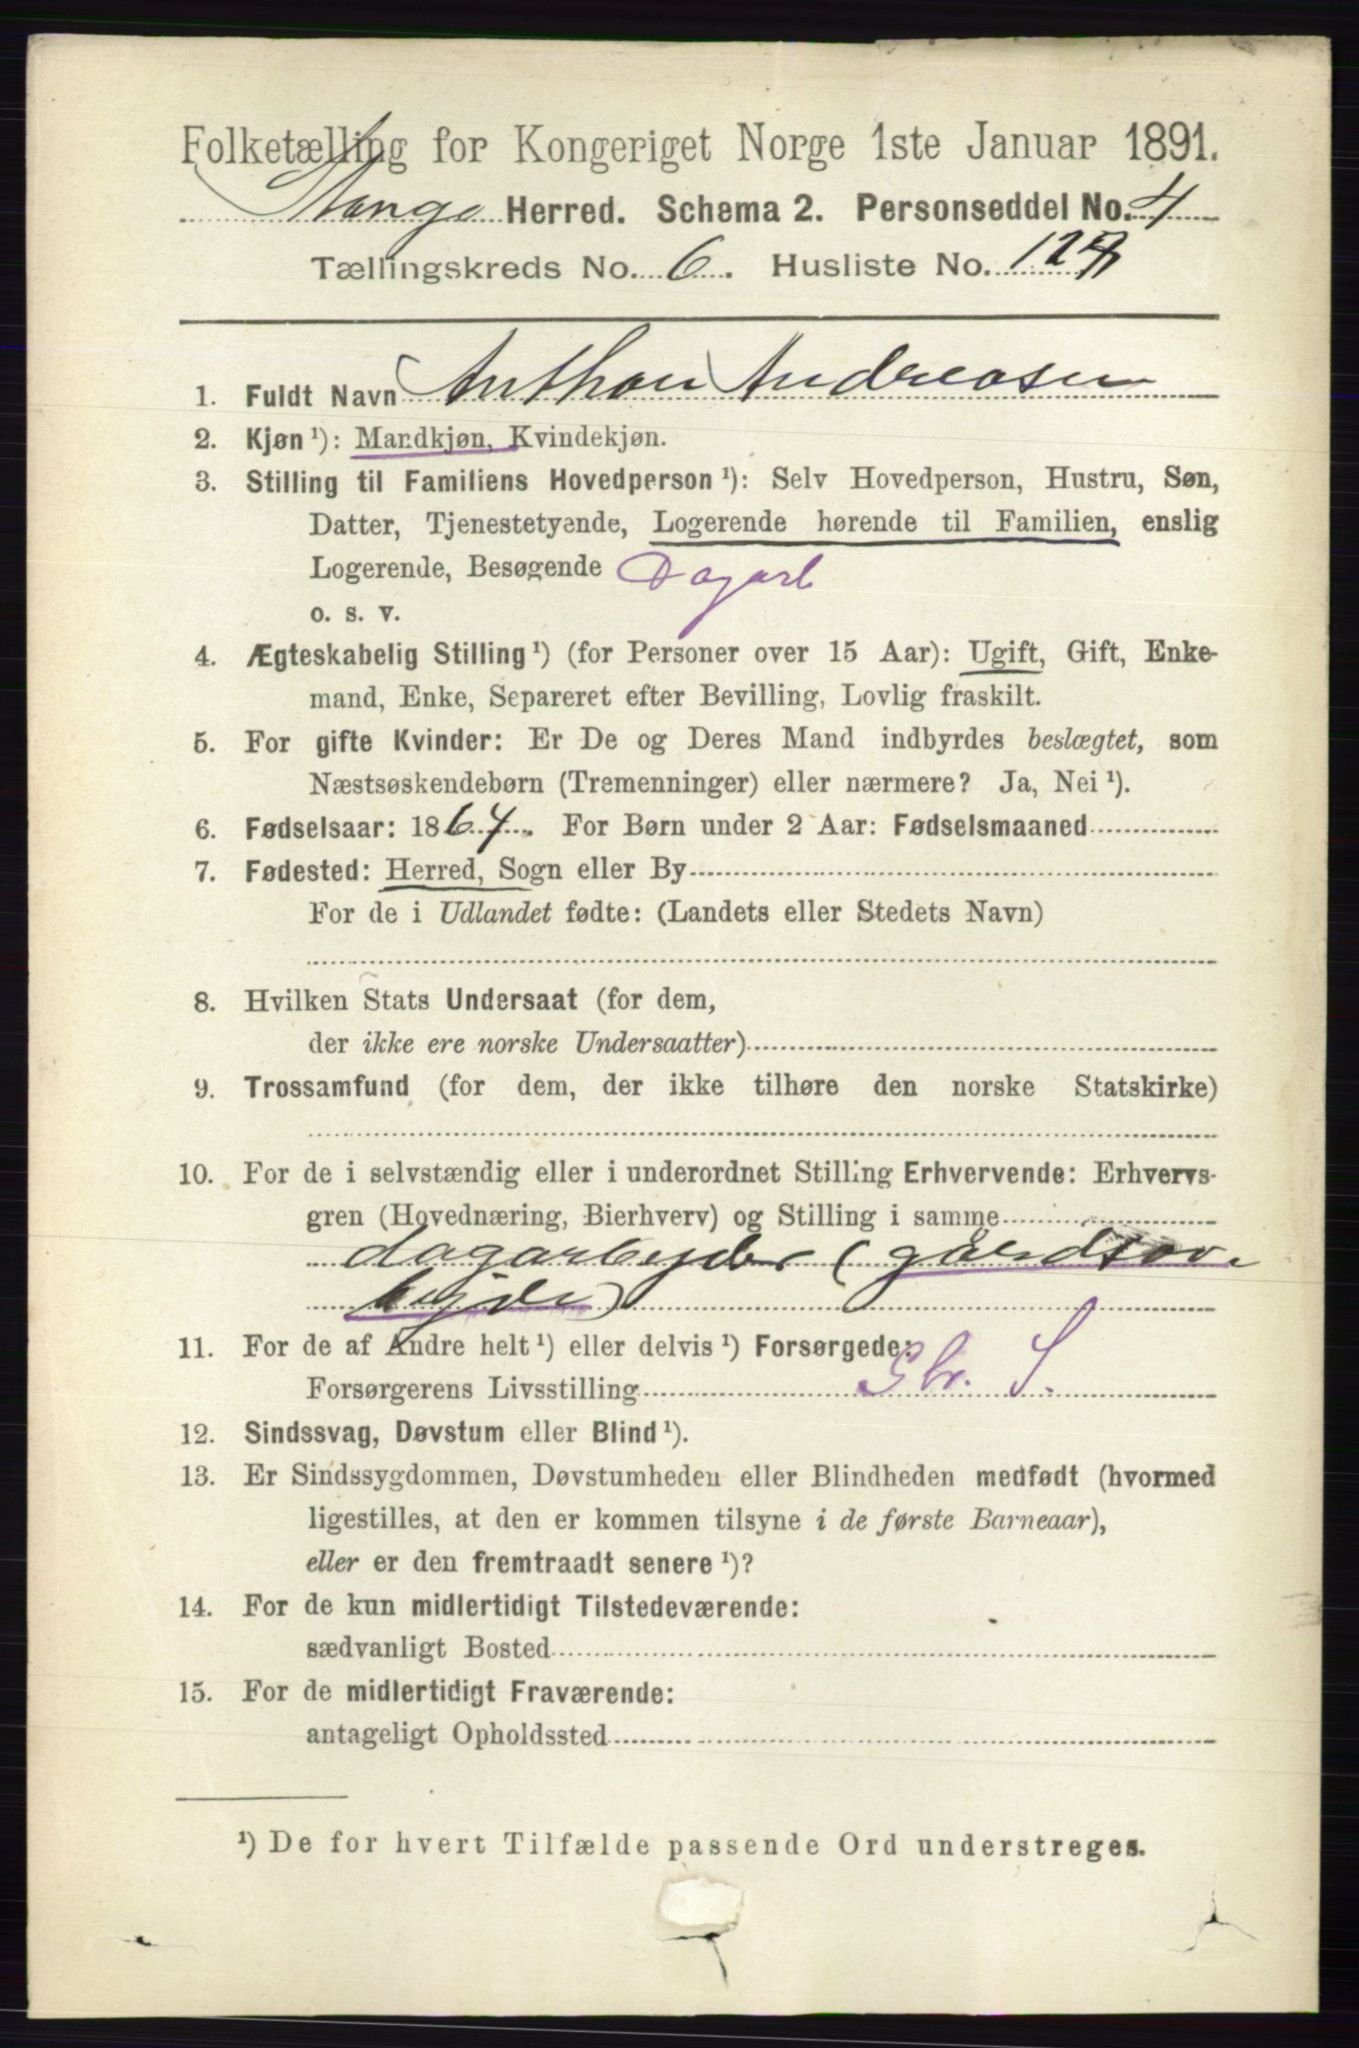 Folketælling for Kongeriget Norge 1ste Januar 1891.
Stange Herred. Schema 2. Personseddel No. 4
Tællingskreds No. 6. Husliste No. 127
1. Fuldt Navn Anthon Andreasen
2. Kjøn ¹): Mandkjøn, Kvindekjøn.
3. Stilling til Familiens Hovedperson ¹): Selv Hovedperson, Hustru, Søn,
Datter, Tjenestetyende, Logerende hørende til Familien, enslig
Logerende, Besøgende Dagarb
o. s. v.
4. Ægteskabelig Stilling ¹) (for Personer over 15 Aar): Ugift, Gift, Enke-
mand, Enke, Separeret efter Bevilling, Lovlig fraskilt.
5. For gifte Kvinder: Er De og Deres Mand indbyrdes beslægtet, som
Næstsøskendebørn (Tremenninger) eller nærmere? Ja, Nei ¹).
6. Fødselsaar: 1864. For Børn under 2 Aar: Fødselsmaaned
7. Fødested: Herred, Sogn eller By
For de i Udlandet fødte: (Landets eller Stedets Navn)
8. Hvilken Stats Undersaat (for dem,
der ikke ere norske Undersaatter)
9. Trossamfund (for dem, der ikke tilhøre den norske Statskirke)
10. For de i selvstændig eller i underordnet Stilling Erhvervende: Erhvervs-
gren (Hovednæring, Bierhverv) og Stilling i samme
dagarbeyder (gårdsar-
bejde)
11. For de af Andre helt ¹) eller delvis ¹) Forsørgede:
Forsørgerens Livsstilling Gbr. S.
12. Sindssvag, Døvstum eller Blind ¹).
13. Er Sindssygdommen, Døvstumheden eller Blindheden medfødt (hvormed
ligestilles, at den er kommen tilsyne i de første Barneaar),
eller er den fremtraadt senere ¹)?
14. For de kun midlertidigt Tilstedeværende:
sædvanligt Bosted
15. For de midlertidigt Fraværende:
antageligt Opholdssted
¹) De for hvert Tilfælde passende Ord understreges.